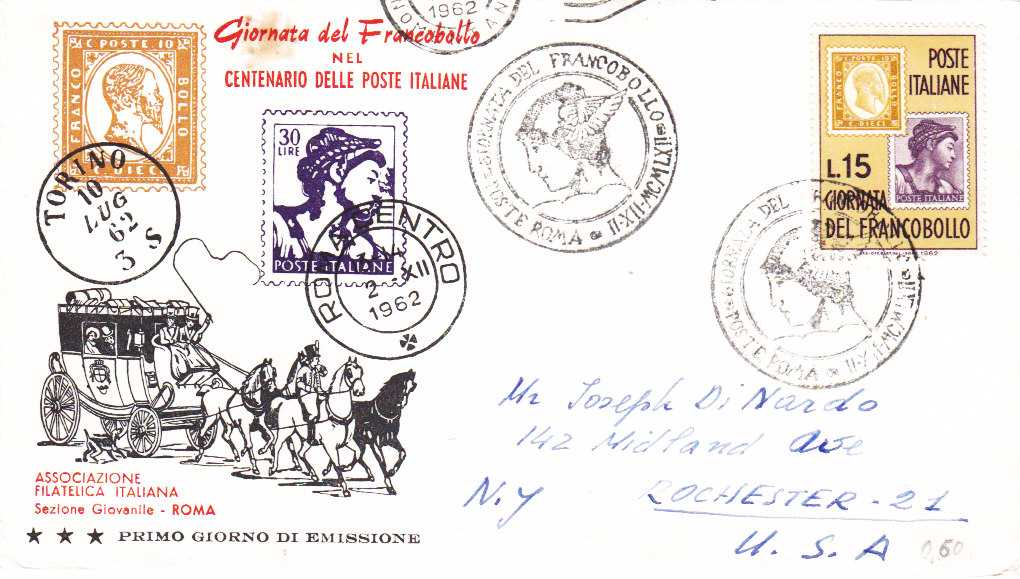 Giornata del Francobollo
NEL
CENTENARIO DELLE POSTE ITALIANE
C POSTE 10
FRANCO
BOLLO
C DIECI
TORINO
10
LUG
62
3 S
30
LIRE
POSTE ITALIANE
ROMA CENTRO
2 - XII
1962
1962
GIORNATA DEL FRANCOBOLLO
POSTE ROMA
II·XII·MCMLXII
POSTE
ITALIANE
C. POSTE 10
FRANCO
BOLLO
C DIECI
POSTE ITALIANE
L.15
GIORNATA
DEL FRANCOBOLLO
1962
GIORNATA DEL
POSTE ROMA
Mr Joseph Di Nardo
142 Midland Ave
N.Y ROCHESTER - 21
U. S. A
ASSOCIAZIONE
FILATELICA ITALIANA
Sezione Giovanile - ROMA
★ ★ ★ PRIMO GIORNO DI EMISSIONE